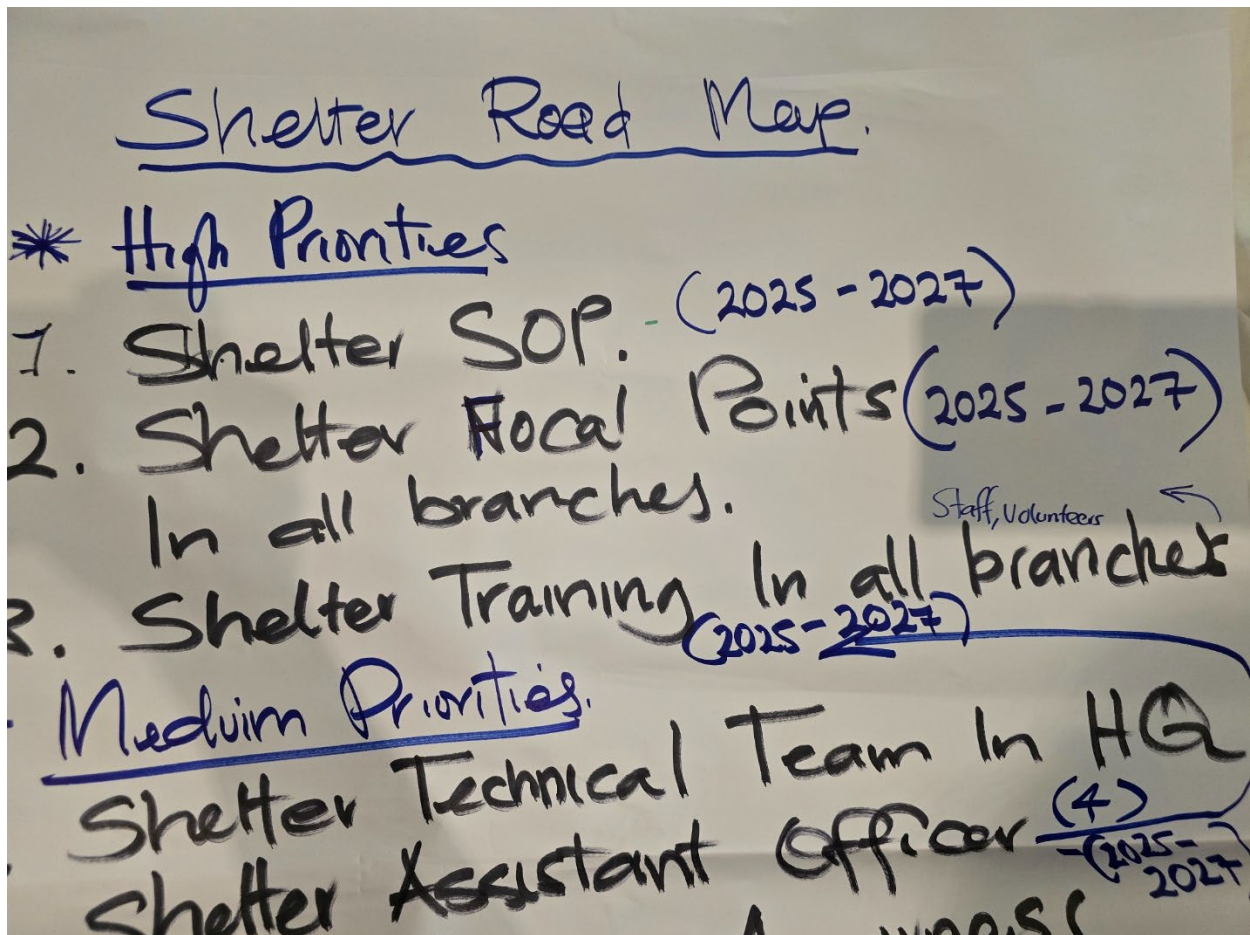 Shelter Road Map.
* High Priorities
1. Shelter SOP. - (2025 - 2027)
2. Shelter Focal Points (2025 - 2027)
In all branches.
Staff, Volunteers
3. Shelter Training In all branches
(2025 - 2027)
- Meduim Priorities.
Shelter Technical Team In HQ
(4)
Shelter Assistant Officer - (2025 -
2027)